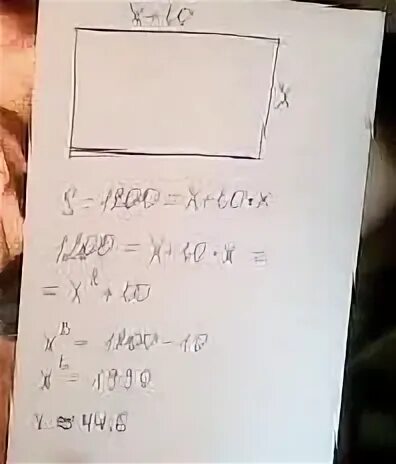 x+10
x
S = 1200 = x+10·x
1200 = x+10·x =
= x² + 10
x² = 1200 - 10
x² = 1990
x ≈ 44.6